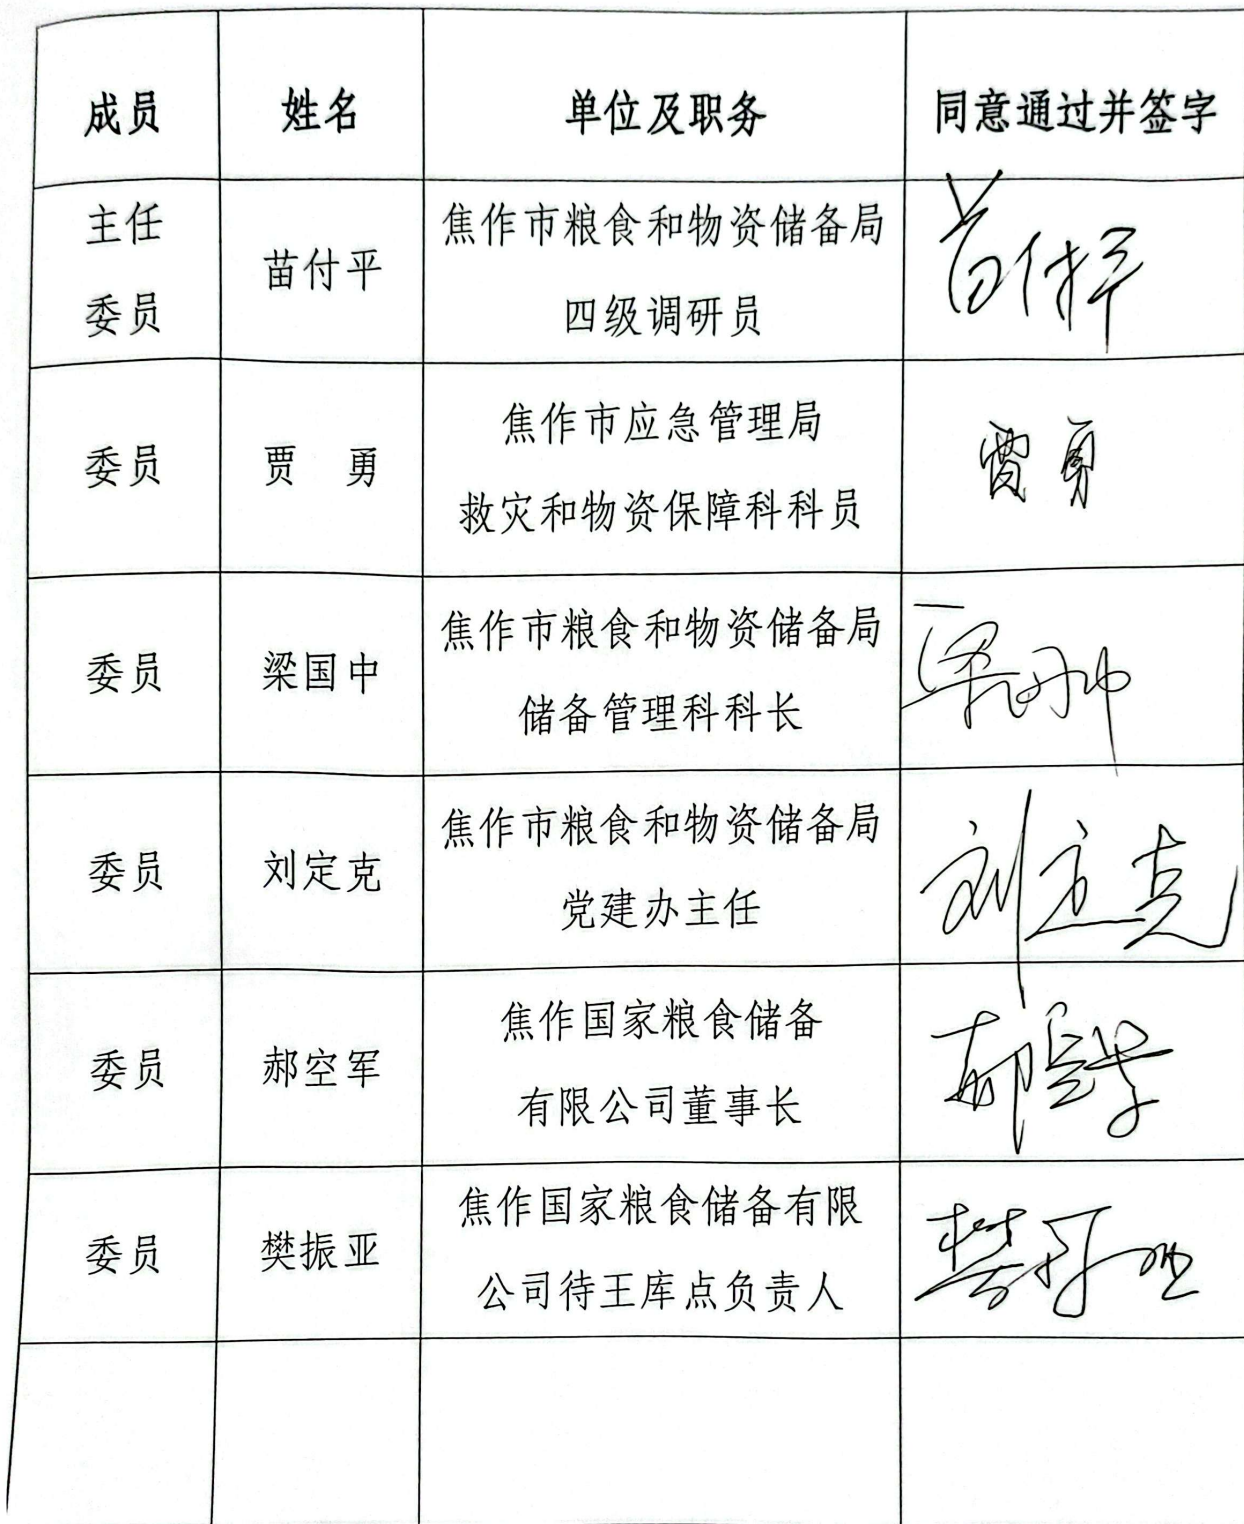 成员 姓名 单位及职务 同意通过并签字
主任
委员
苗付平
焦作市粮食和物资储备局
四级调研员
苗付平
委员
贾 勇
焦作市应急管理局
救灾和物资保障科科员
贾勇
委员
梁国中
焦作市粮食和物资储备局
储备管理科科长
梁国中
委员
刘定克
焦作市粮食和物资储备局
党建办主任
刘定克
委员
郝空军
焦作国家粮食储备
有限公司董事长
郝空军
委员
樊振亚
焦作国家粮食储备有限
公司待王库点负责人
樊振亚